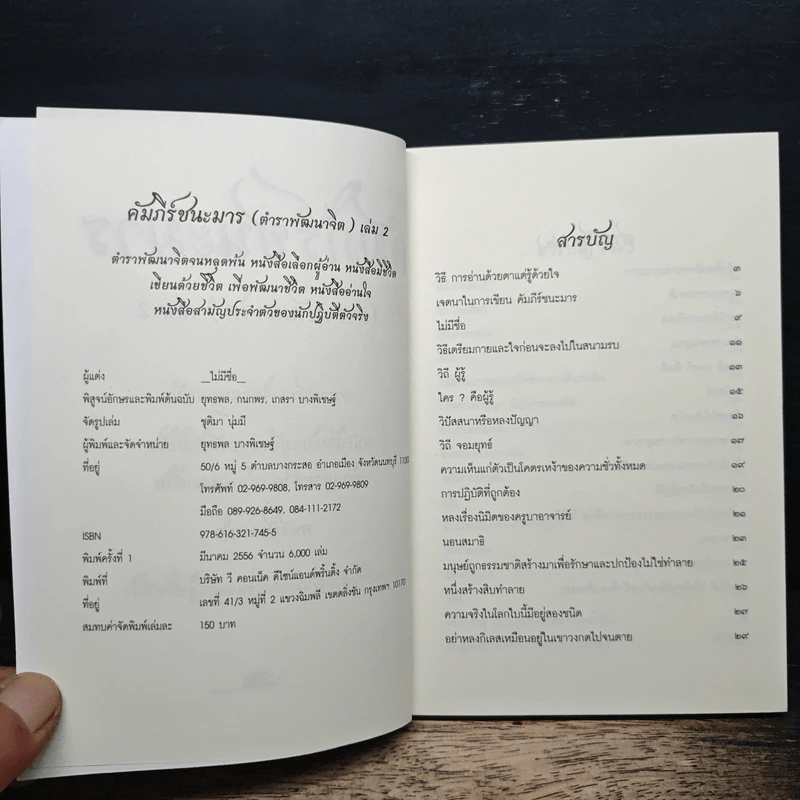 คัมภีร์ชนะมาร (ตำราพัฒนาจิต) เล่ม 2
ตำราพัฒนาจิตจนหลุดพ้น หนังสือเลือกผู้อ่าน หนังสือมีชีวิต
เขียนด้วยชีวิต เพื่อพัฒนาชีวิต หนังสืออ่านใจ
หนังสือสามัญประจำตัวของนักปฏิบัติตัวจริง
ผู้แต่ง __ไม่มีชื่อ__
พิสูจน์อักษรและพิมพ์ต้นฉบับ ยุทธพล, กนกพร, เกสรา บางพิเชษฐ์
จัดรูปเล่ม ชุติมา นุ่มมี
ผู้พิมพ์และจัดจำหน่าย ยุทธพล บางพิเชษฐ์
ที่อยู่ 50/6 หมู่ 5 ตำบลบางกระสอ อำเภอเมือง จังหวัดนนทบุรี 11000
โทรศัพท์ 02-969-9808, โทรสาร 02-969-9809
มือถือ 089-926-8649, 084-111-2172
ISBN 978-616-321-745-5
พิมพ์ครั้งที่ 1 มีนาคม 2556 จำนวน 6,000 เล่ม
พิมพ์ที่ บริษัท วี คอนเน็ค ดีไซน์แอนด์พริ้นติ้ง จำกัด
ที่อยู่ เลขที่ 41/3 หมู่ที่ 2 แขวงฉิมพลี เขตตลิ่งชัน กรุงเทพฯ 10170
สมทบค่าจัดพิมพ์เล่มละ 150 บาท
สารบัญ
วิธี การอ่านด้วยตาแต่รู้ด้วยใจ ๓
เจตนาในการเขียน คัมภีร์ชนะมาร ๖
ไม่มีชื่อ ๙
วิธีเตรียมกายและใจก่อนจะลงไปในสนามรบ ๑๑
วิถี ผู้รู้ ๑๓
ใคร ? คือผู้รู้ ๑๕
วิปัสสนาหรือหลงปัญญา ๑๖
วิถี จอมยุทธ์ ๑๗
ความเห็นแก่ตัวเป็นโคตรเหง้าของความชั่วทั้งหมด ๑๙
การปฏิบัติที่ถูกต้อง ๒๐
หลงเรื่องนิมิตของครูบาอาจารย์ ๒๑
นอนสมาธิ ๒๓
มนุษย์ถูกธรรมชาติสร้างมาเพื่อรักษาและปกป้องไม่ใช่ทำลาย ๒๕
หนึ่งสร้างสิบทำลาย ๒๖
ความจริงในโลกใบนี้มีอยู่สองชนิด ๒๗
อย่าหลงกิเลสเหมือนอยู่ในเขาวงกตไปจนตาย ๒๙